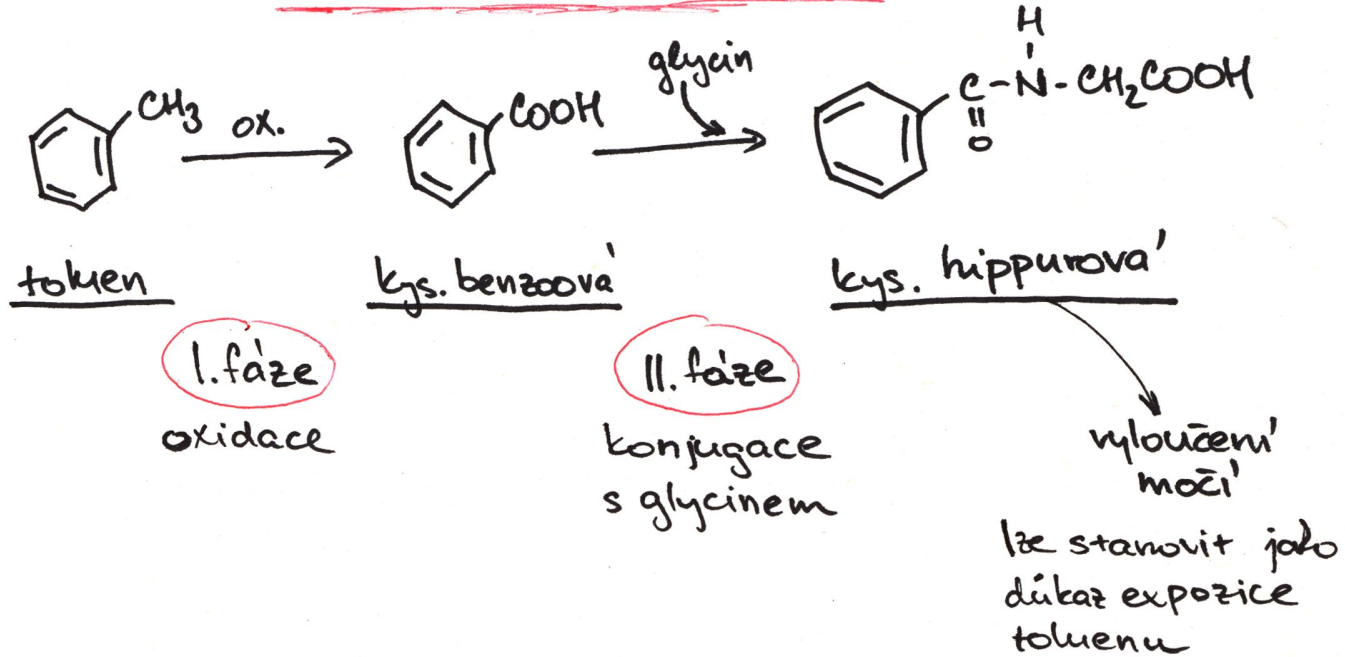 CH3 ox. COOH glycin H
C-N-CH2COOH
O
toluen kys. benzoová kys. hippurová
I. fáze II. fáze
oxidace konjugace s glycinem
vyloučení
močí
lze stanovit jako
důkaz expozice
toluenu